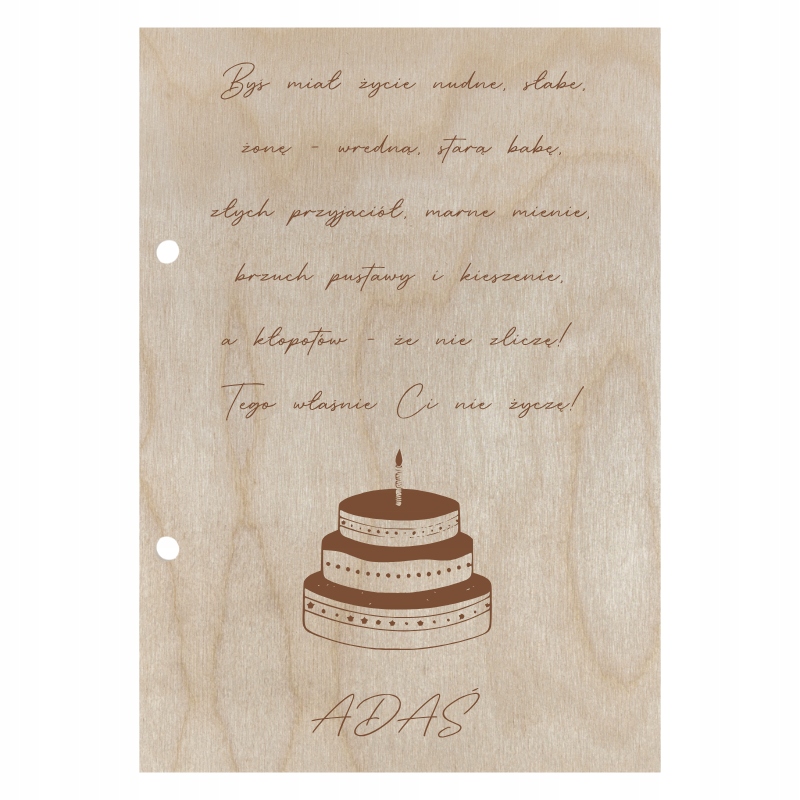 Byś miał życie nudne, słabe,
żonę - wredną, starą babę,
złych przyjaciół, marne mienie,
brzuch pustawy i kieszenie,
a kłopotów - że nie zliczę!
Tego właśnie Ci nie życzę!
ADAŚ